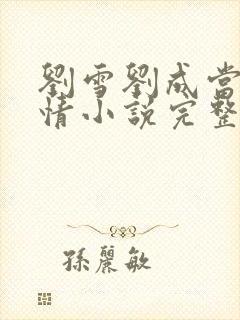 劉雪劉成當
情小說完整
孫麗敏